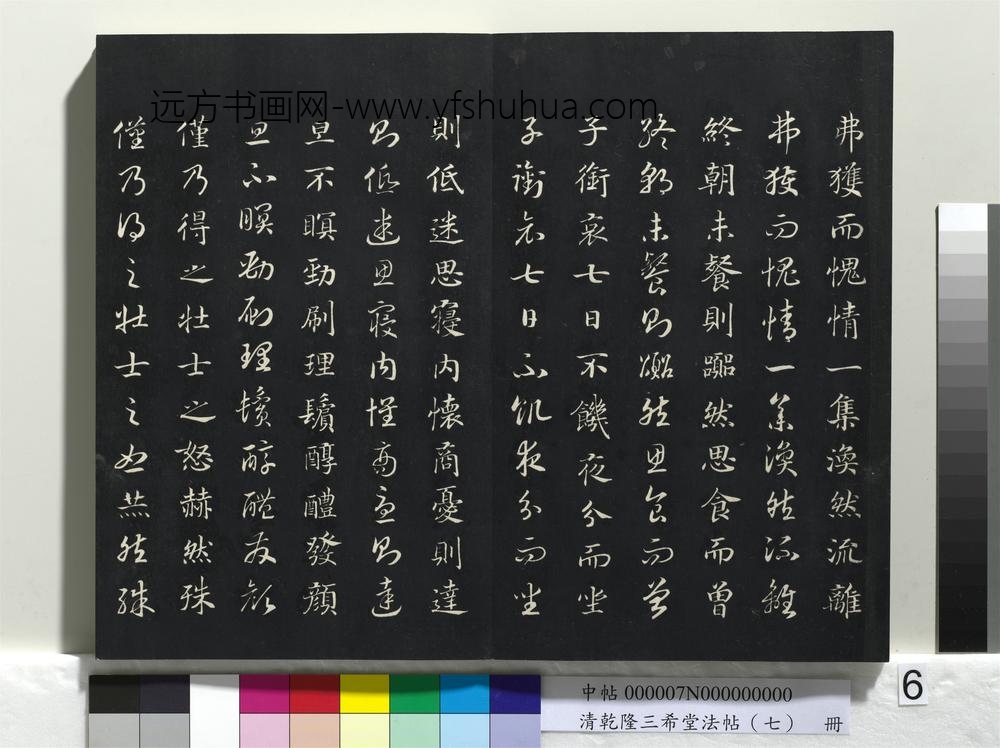 弗獲而愧情一集渙然流離
弗獲而愧情一集渙然流離
終朝未餐則囂然思食而曾
終朝未餐則囂然思食而曾
子銜哀七日不饑夜分而坐
子銜哀七日不飢夜分而坐
則低迷思寢内懷商憂則達
則低迷思寢内懷商憂則達
旦不瞑勁刷理鬢醇醴發顏
旦不瞑勁刷理鬢醇醴發顏
僅乃得之壯士之怒赫然殊
僅乃得之壯士之怒赫然殊
远方书画网-www.yfshuhua.com
6
中帖 000007N000000000
清乾隆三希堂法帖（七） 冊